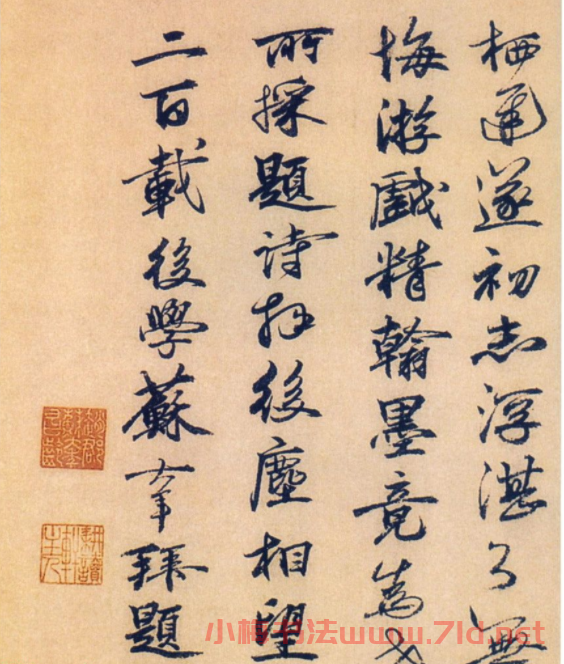 栖遁遂初志浮湛了無
悔游戲精翰墨竟為
所採題詩拜後塵相望
二百載後學蘇大年拜題
小楷书法www.7ld.net